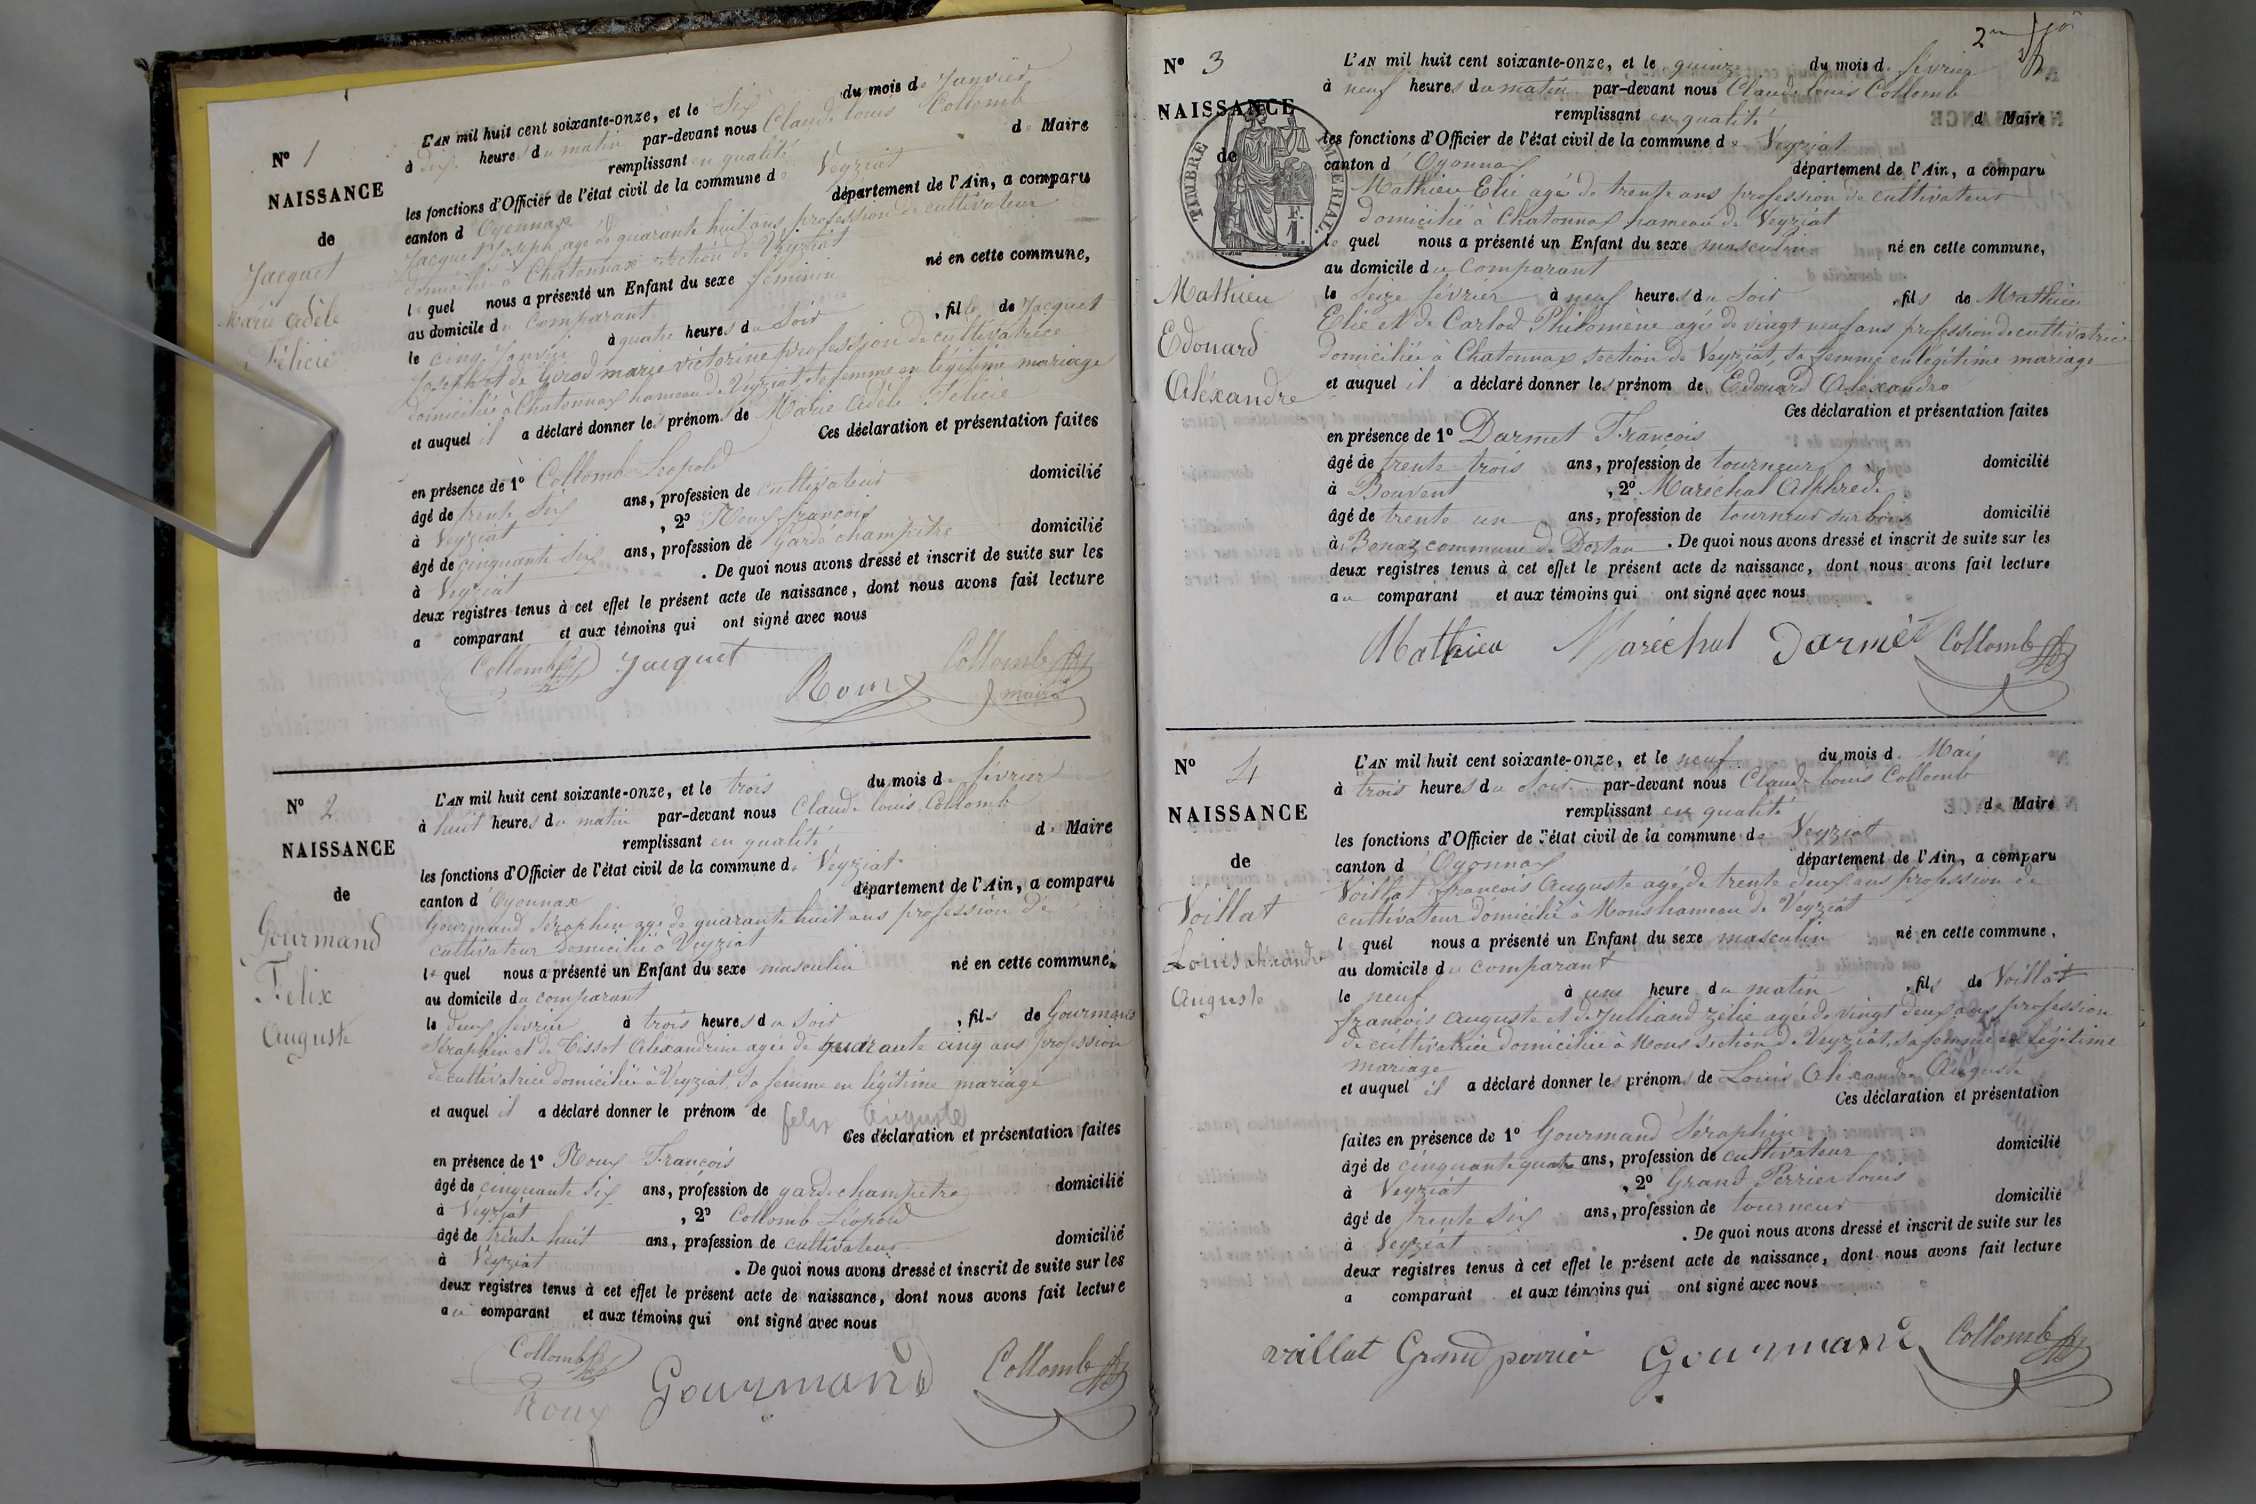 N° 1
NAISSANCE
de
Jacquet
Marie Adèle
Félicie
L'AN mil huit cent soixante-onze, et le Six du mois de Janvier
à dix heures du matin par-devant nous Claude Louis Collomb
remplissant en qualité de Maire
les fonctions d'Officier de l'état civil de la commune de Veyziat
canton d'Oyonnax département de l'Ain, a comparu
Jacquet Joseph, agé de quarante huit ans profession de cultivateur
domicilié à Chatonnax section de Veyziat
lequel nous a présenté un Enfant du sexe féminin né en cette commune,
au domicile du comparant
le cinq Janvier à quatre heures du Soir, fille de Jacquet
Joseph et de Girod marie victorine profession de cultivatrice
domiciliée à Chatonnax hameau de Veyziat, sa femme en légitime mariage
et auquel il a déclaré donner les prénoms de Marie Adèle Félicie
Ces déclaration et présentation faites
en présence de 1° Collomb Léopold
âgé de trente six ans, profession de cultivateur domicilié
à Veyziat, 2° Roux françois
âgé de cinquante six ans, profession de garde champêtre domicilié
à Veyziat. De quoi nous avons dressé et inscrit de suite sur les
deux registres tenus à cet effet le présent acte de naissance, dont nous avons fait lecture
a comparant et aux témoins qui ont signé avec nous
Collomb Jacquet Roux Collomb
maire
N° 2
NAISSANCE
de
Gourmand
Felix
Auguste
L'AN mil huit cent soixante-onze, et le trois du mois de février
à huit heures du matin par-devant nous Claude louis Collomb
remplissant en qualité de Maire
les fonctions d'Officier de l'état civil de la commune de Veyziat
canton d'Oyonnax département de l'Ain, a comparu
Gourmand Séraphin agé de quarante huit ans profession de
cultivateur domicilié à Veyziat
lequel nous a présenté un Enfant du sexe masculin né en cette commune,
au domicile du comparant
le deux février à trois heures du soir, fils de Gourmand
Séraphin et de Tissot Alexandrine agée de quarante cinq ans profession
de cultivatrice domiciliée à Veyziat, sa femme en légitime mariage
et auquel il a déclaré donner le prénom de felix Auguste
Ces déclaration et présentation faites
en présence de 1° Roux François
âgé de cinquante six ans, profession de garde champêtre domicilié
à Veyziat, 2° Collomb Léopold
âgé de trente huit ans, profession de cultivateur domicilié
à Veyziat. De quoi nous avons dressé et inscrit de suite sur les
deux registres tenus à cet effet le présent acte de naissance, dont nous avons fait lecture
au comparant et aux témoins qui ont signé avec nous
Collomb
Roux Gourmand Collomb
2
N° 3
NAISSANCE
de
TIMBRE IMPERIAL
F.
1.
Mathieu
Edouard
Aléxandre
L'AN mil huit cent soixante-onze, et le quinze du mois de février
à neuf heures du matin par-devant nous Claude louis Collomb
remplissant en qualité d Maire
les fonctions d'Officier de l'état civil de la commune de Veyziat
canton d'Oyonnax département de l'Ain, a comparu
Mathieu Elie agé de trente ans profession de cultivateur
domicilié à Chatonnax hameau de Veyziat
lequel nous a présenté un Enfant du sexe masculin né en cette commune,
au domicile du comparant
le Seize février à neuf heures du Soir, fils de Mathieu
Elie et de Carlod Philomène agée de vingt neuf ans profession de cultivatrice
domiciliée à Chatonnax section de Veyziat, sa femme en légitime mariage
et auquel il a déclaré donner les prénom de Edouard Aléxandre
Ces déclaration et présentation faites
en présence de 1° Darmet François
âgé de trente trois ans, profession de tourneur domicilié
à Bouvent, 2° Maréchal Alphred
âgé de trente un ans, profession de tourneur sur bois domicilié
à Bonaz commune de Dortan. De quoi nous avons dressé et inscrit de suite sur les
deux registres tenus à cet effet le présent acte de naissance, dont nous avons fait lecture
au comparant et aux témoins qui ont signé avec nous
Mathieu Maréchal Darmet Collomb
N° 4
NAISSANCE
de
Voillat
Louis alexandre
Auguste
L'AN mil huit cent soixante-onze, et le neuf du mois de Mai
à trois heures du Soir par-devant nous Claude louis Collomb
remplissant en qualité de Maire
les fonctions d'Officier de l'état civil de la commune de Veyziat
canton d'Oyonnax département de l'Ain, a comparu
Voillat françois Auguste agé de trente deux ans profession de
cultivateur domicilié à Mons hameau de Veyziat
l quel nous a présenté un Enfant du sexe masculin né en cette commune,
au domicile du comparant
le neuf à une heure du matin, fils de Voillat
françois Auguste et de Julliand zélie agée de vingt deux ans profession
de cultivatrice domiciliée à Mons section de Veyziat, sa femme en légitime
mariage
et auquel il a déclaré donner les prénoms de Louis Alexandre Auguste
Ces déclaration et présentation
faites en présence de 1° Gourmand Séraphin
âgé de cinquante quatre ans, profession de cultivateur domicilié
à Veyziat, 2° Grand Perrier Louis
âgé de trente six ans, profession de tourneur domicilié
à Veyziat. De quoi nous avons dressé et inscrit de suite sur les
deux registres tenus à cet effet le présent acte de naissance, dont nous avons fait lecture
a comparant et aux témoins qui ont signé avec nous
Voillat Grand perrier Gourmand Collomb